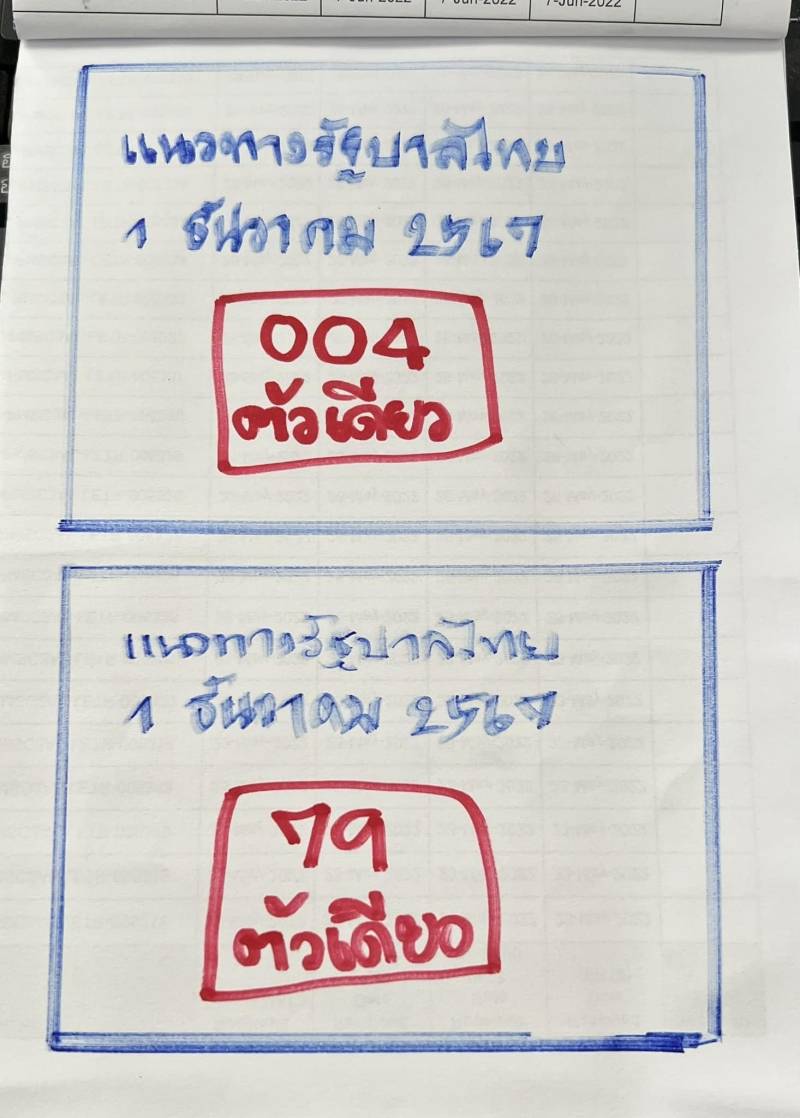 7-Jun-2022 7-Jun-2022
แนวทางรัฐบาลไทย
1 ธันวาคม 2567
004
ตัวเดียว
แนวทางรัฐบาลไทย
1 ธันวาคม 2567
79
ตัวเดียว